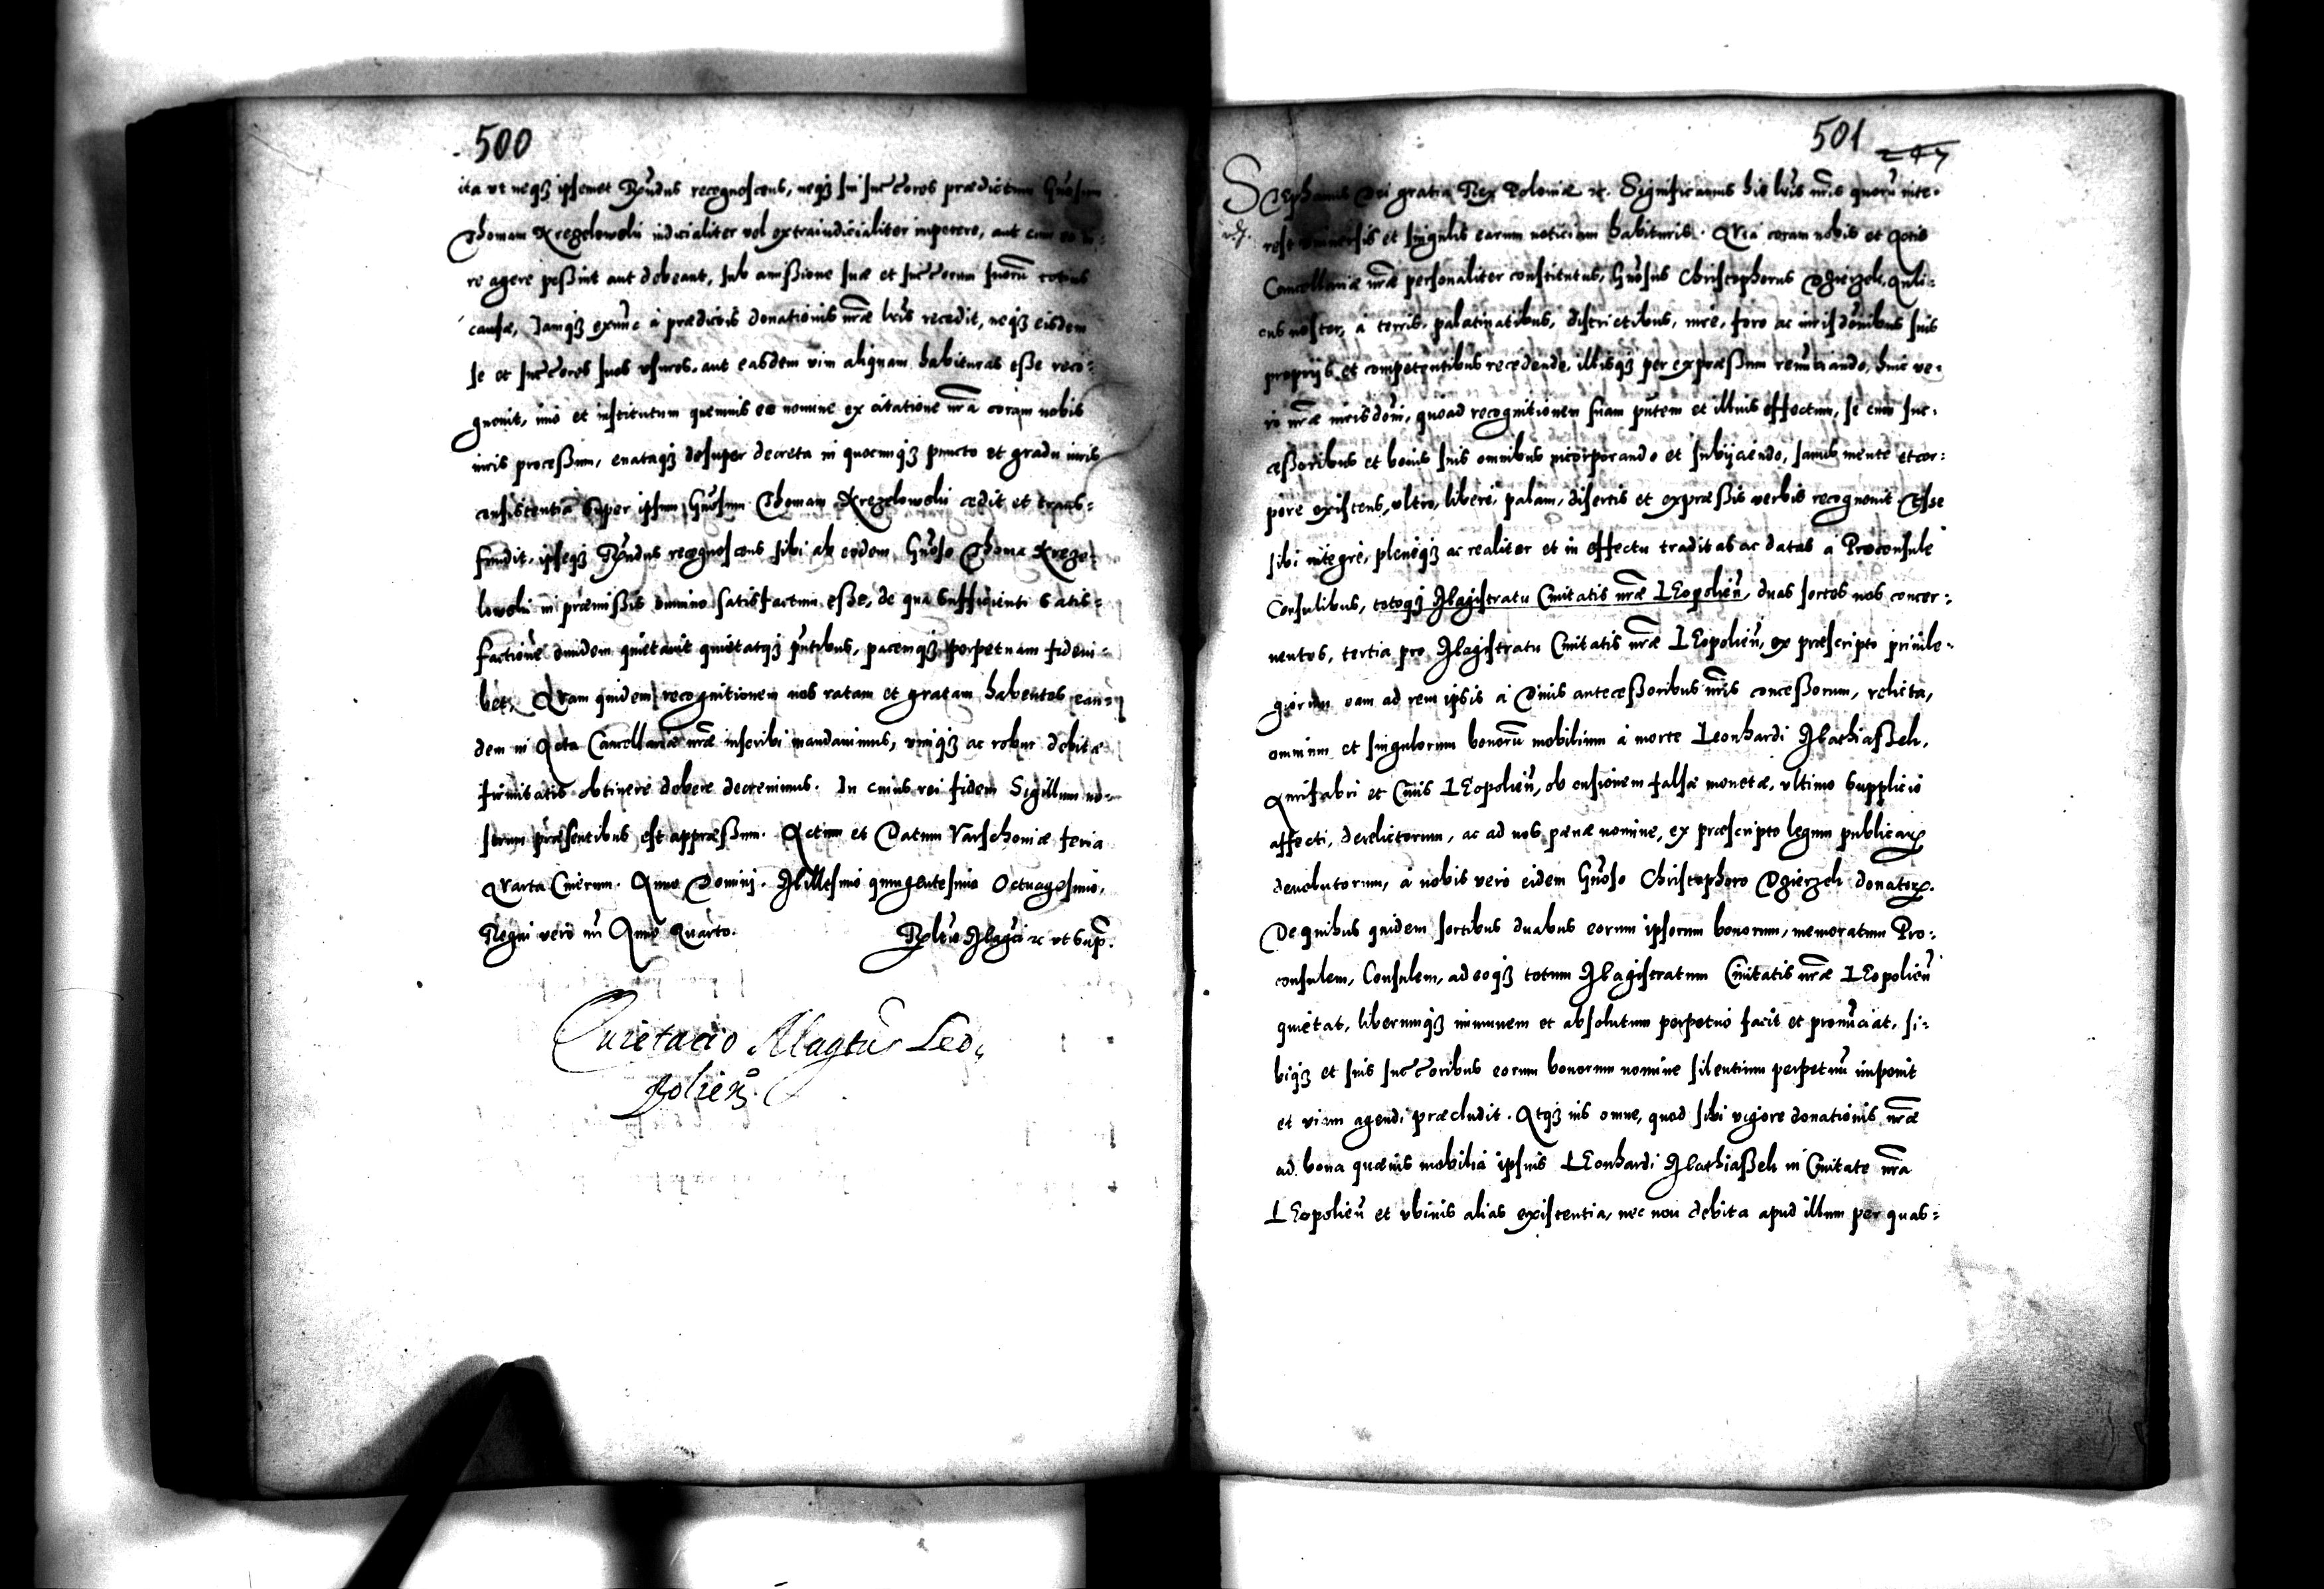 500
ita vt neqꝫ ipsemet Rñdus recognoscens, neqꝫ sui succores prædictum Gñosum
Thomam Kregelowski iudicialiter vel extraiudicialiter impetere, aut cum eo
re agere possint aut debeant, sub amißione suæ et succorum suorũ totius
causæ, Iamqꝫ exnũc à prædictis donationis nr̃æ lr̃is recedit, neqꝫ eisdem
se et succores suos vsuros, aut easdem vim aliquam habituras eße reco:
gnouit, imo et institutum quemuis eo nomine ex citatione nr̃a coram nobis
iuris proceßum, enataqꝫ desuper decreta in quocunqꝫ puncto et gradu iuris
consistentia super ipsum Gñosum Thomam Kregelowski cedit et trans:
fundit, ipseqꝫ Rñdus recognoscens sibi ab eodem Gñoso Thoma Krege:
lowski in præmißis omnino satisfactum eße, de qua sufficienti satis:
factione eundem quietauit quietatqꝫ pñtibus, pacemqꝫ perpetuam fideiu:
bet. Quam quidem recognitionem nos ratam et gratam habentes ean:
dem in Acta Cancellariæ nr̃æ inscribi mandauimus, vimqꝫ ac robur debitæ
firmitatis obtinere debere decreuimus. In cuius rei fidem Sigillum no:
strum præsentibus est appræßum. Actum et Datum Varschouiæ feria
Quarta Cinerum. Anno Domini. Millesimo quingentesimo Octuagesimo,
Regni vero nr̃i Anno Quarto.
Rltio Magci ꝛc vt sup.
Quietatio Magtus Leo,
polien.
501
247
Stephanus Dei gratia Rex Poloniæ ꝛc. Significamus his lr̃is nr̃is quorũ inte:
rest vniuersis et singulis earum noticiam habituris. Quia coram nobis et Actis
Cancellariæ nr̃æ personaliter constitutus, Gñosus Christophorus Dzierzek, Auli:
cus noster, à terris, palatinatibus, districtibus, iure, foro ac iurisdõnibus suis
proprijs et competentibus recedendo, illisqꝫ per expræßum renũtiando, huic ve:
ro nr̃æ iurisdõni, quoad recognitionem suam pñtem et illius effectum, se cum suc:
ceßoribus et bonis suis omnibus incorporando et subijciendo, sanus mente et cor:
pore existens, vltro, libere, palam, disertis et expræßis verbis recognouit Esse
sibi integre, pleneqꝫ ac realiter et in effectu traditas ac datas à Proconsule
Consulibus, totoqꝫ Magistratu Ciuitatis nr̃æ LEopolieñ, duas sortes nos concer:
nentes, tertia pro Magistratu Ciuitatis nr̃æ LEopolieñ, ex præscripto priuile:
giorum eam ad rem ipsis à Diuis anteceßoribus nr̃is conceßorum, relicta,
omnium et singulorum bonorũ mobilium à morte Leonhardi Mathiaßek,
Aurifabri et Ciuis LEopolieñ, ob cusionem falsæ monetæ, vltimo supplicio
affecti, derelictorum, ac ad nos pænæ nomine, ex præscripto legum publicarꝫ
deuolutorum, à nobis vero eidem Gñoso Christophoro Dzierzek donatorꝫ.
De quibus quidem sortibus duabus eorum ipsorum bonorum, memoratum Pro:
consulem, Consulem, adeoqꝫ totum Magistratum Ciuitatis nr̃æ LEopolieñ
quietat, liberumqꝫ immunem et absolutum perpetuo facit et pronũciat, si:
biqꝫ et suis succoribus eorum bonorum nomine silentium perpetuũ imponit
et viam agendi præcludit. Atqꝫ ius omne, quod sibi vigore donationis nr̃æ
ad bona quæuis mobilia ipsius LEonhardi Mathiaßek in Ciuitate nr̃a
LEopolieñ et vbiuis alias existentia, nec non debita apud illum per quas: